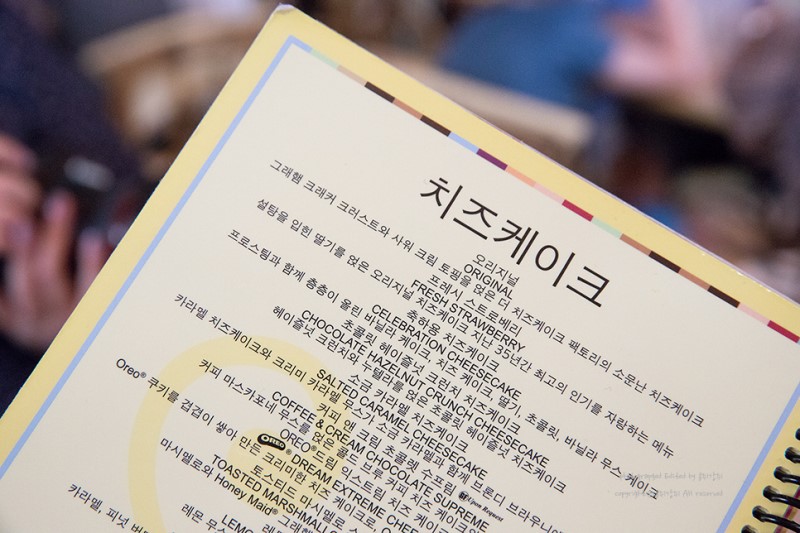 치즈케이크
오리지널
ORIGINAL
그래햄 크래커 크러스트와 사워 크림 토핑을 얹은 더 치즈케이크 팩토리의 소문난 치즈케이크
프레시 스트로베리
FRESH STRAWBERRY
설탕을 입힌 딸기를 얹은 오리지널 치즈케이크 지난 35년간 최고의 인기를 자랑하는 메뉴
축하용 치즈케이크
CELEBRATION CHEESECAKE
프로스팅과 함께 층층이 올린 바닐라 케이크, 치즈 케이크, 딸기, 초콜릿, 바닐라 무스 케이크
초콜릿 헤이즐넛 크런치 치즈케이크
CHOCOLATE HAZELNUT CRUNCH CHEESECAKE
헤이즐넛 크런치와 누텔라를 얹은 초콜릿 헤이즐넛 치즈케이크
소금 카라멜 치즈케이크
SALTED CARAMEL CHEESECAKE
카라멜 치즈케이크와 크리미 카라멜 무스가 소금 카라멜과 함께 브론디 브라우니
커피 앤 크림 초콜렛 수프림
COFFEE & CREAM CHOCOLATE SUPREME
커피 마스카포네 무스를 얹은
OREO® 드림 익스트림 치즈케이크
OREO® DREAM EXTREME CHEE
Oreo® 쿠키를 겹겹이 쌓아 만든 크리미한 치즈케이크
토스티드 마시멜로
TOASTED MARSHMALL
마시멜로와 Honey Maid® 그래햄
레몬
LEMO
레몬 무스
카라멜, 피넛 버